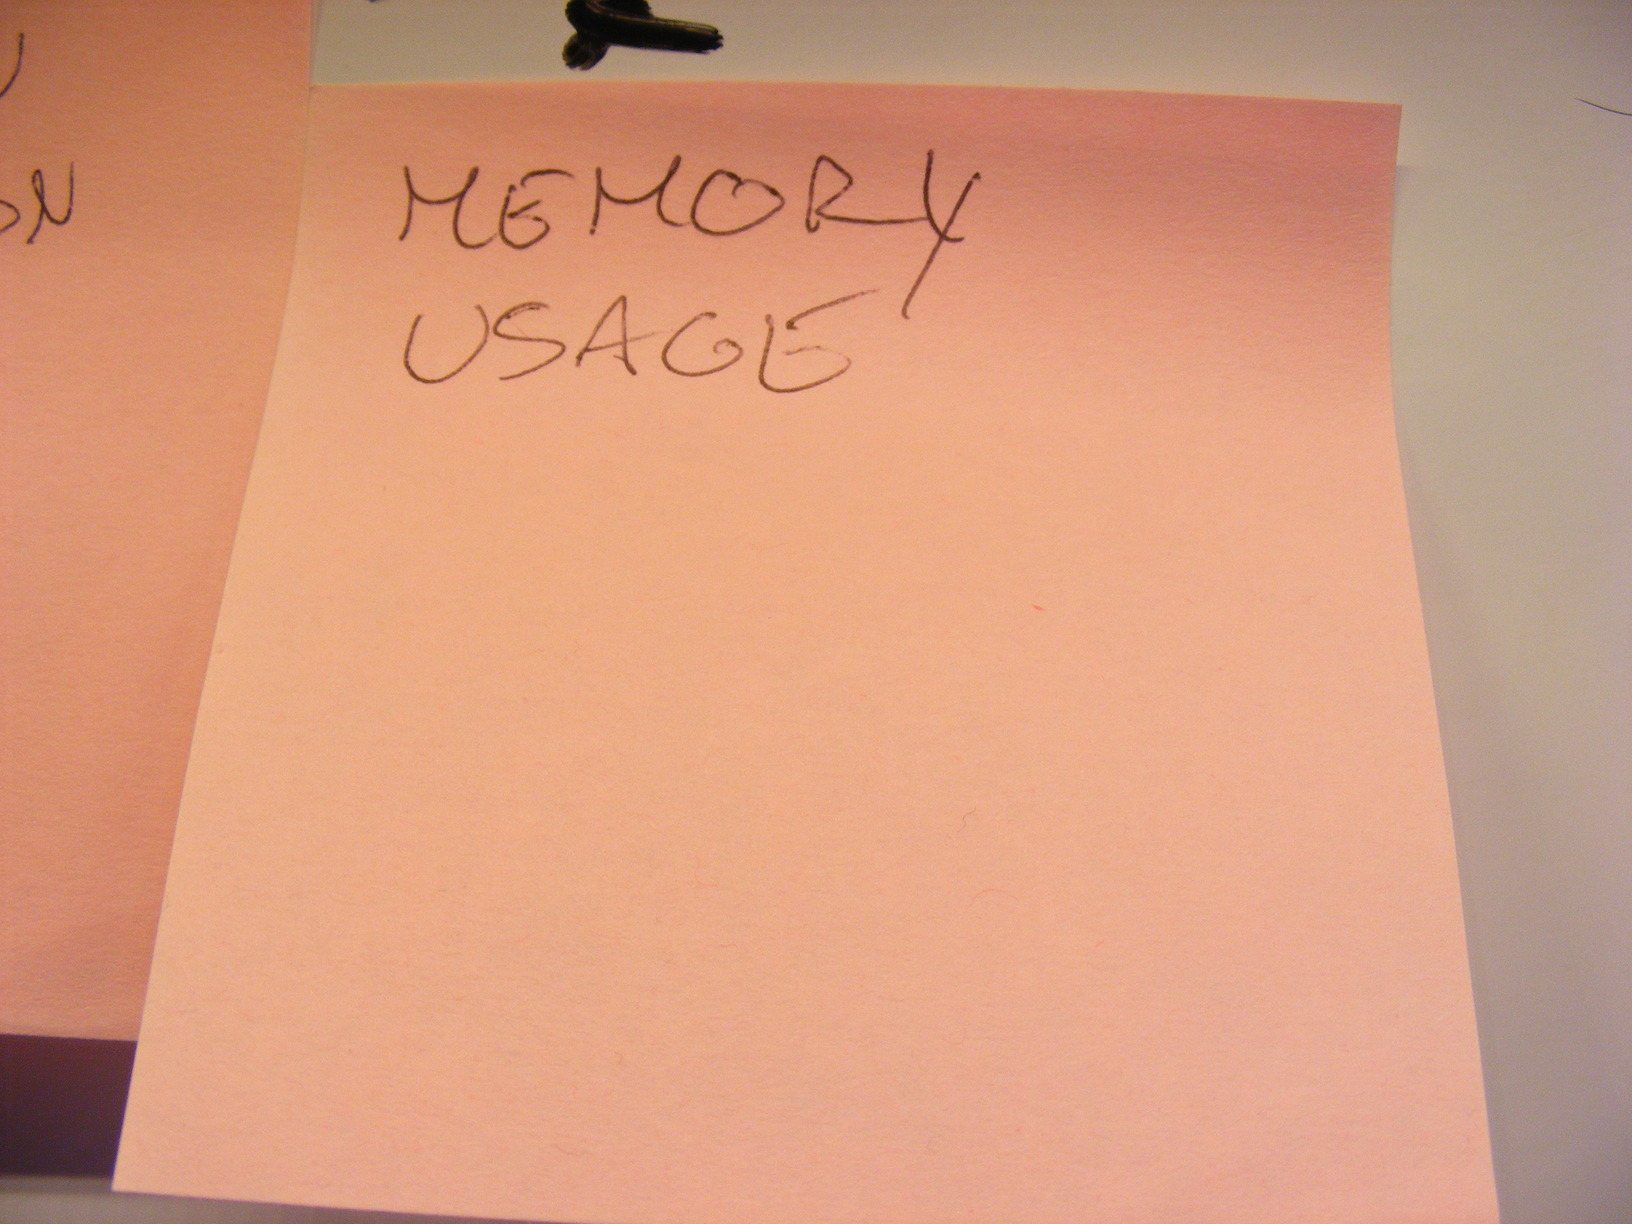 MEMORY
USAGE